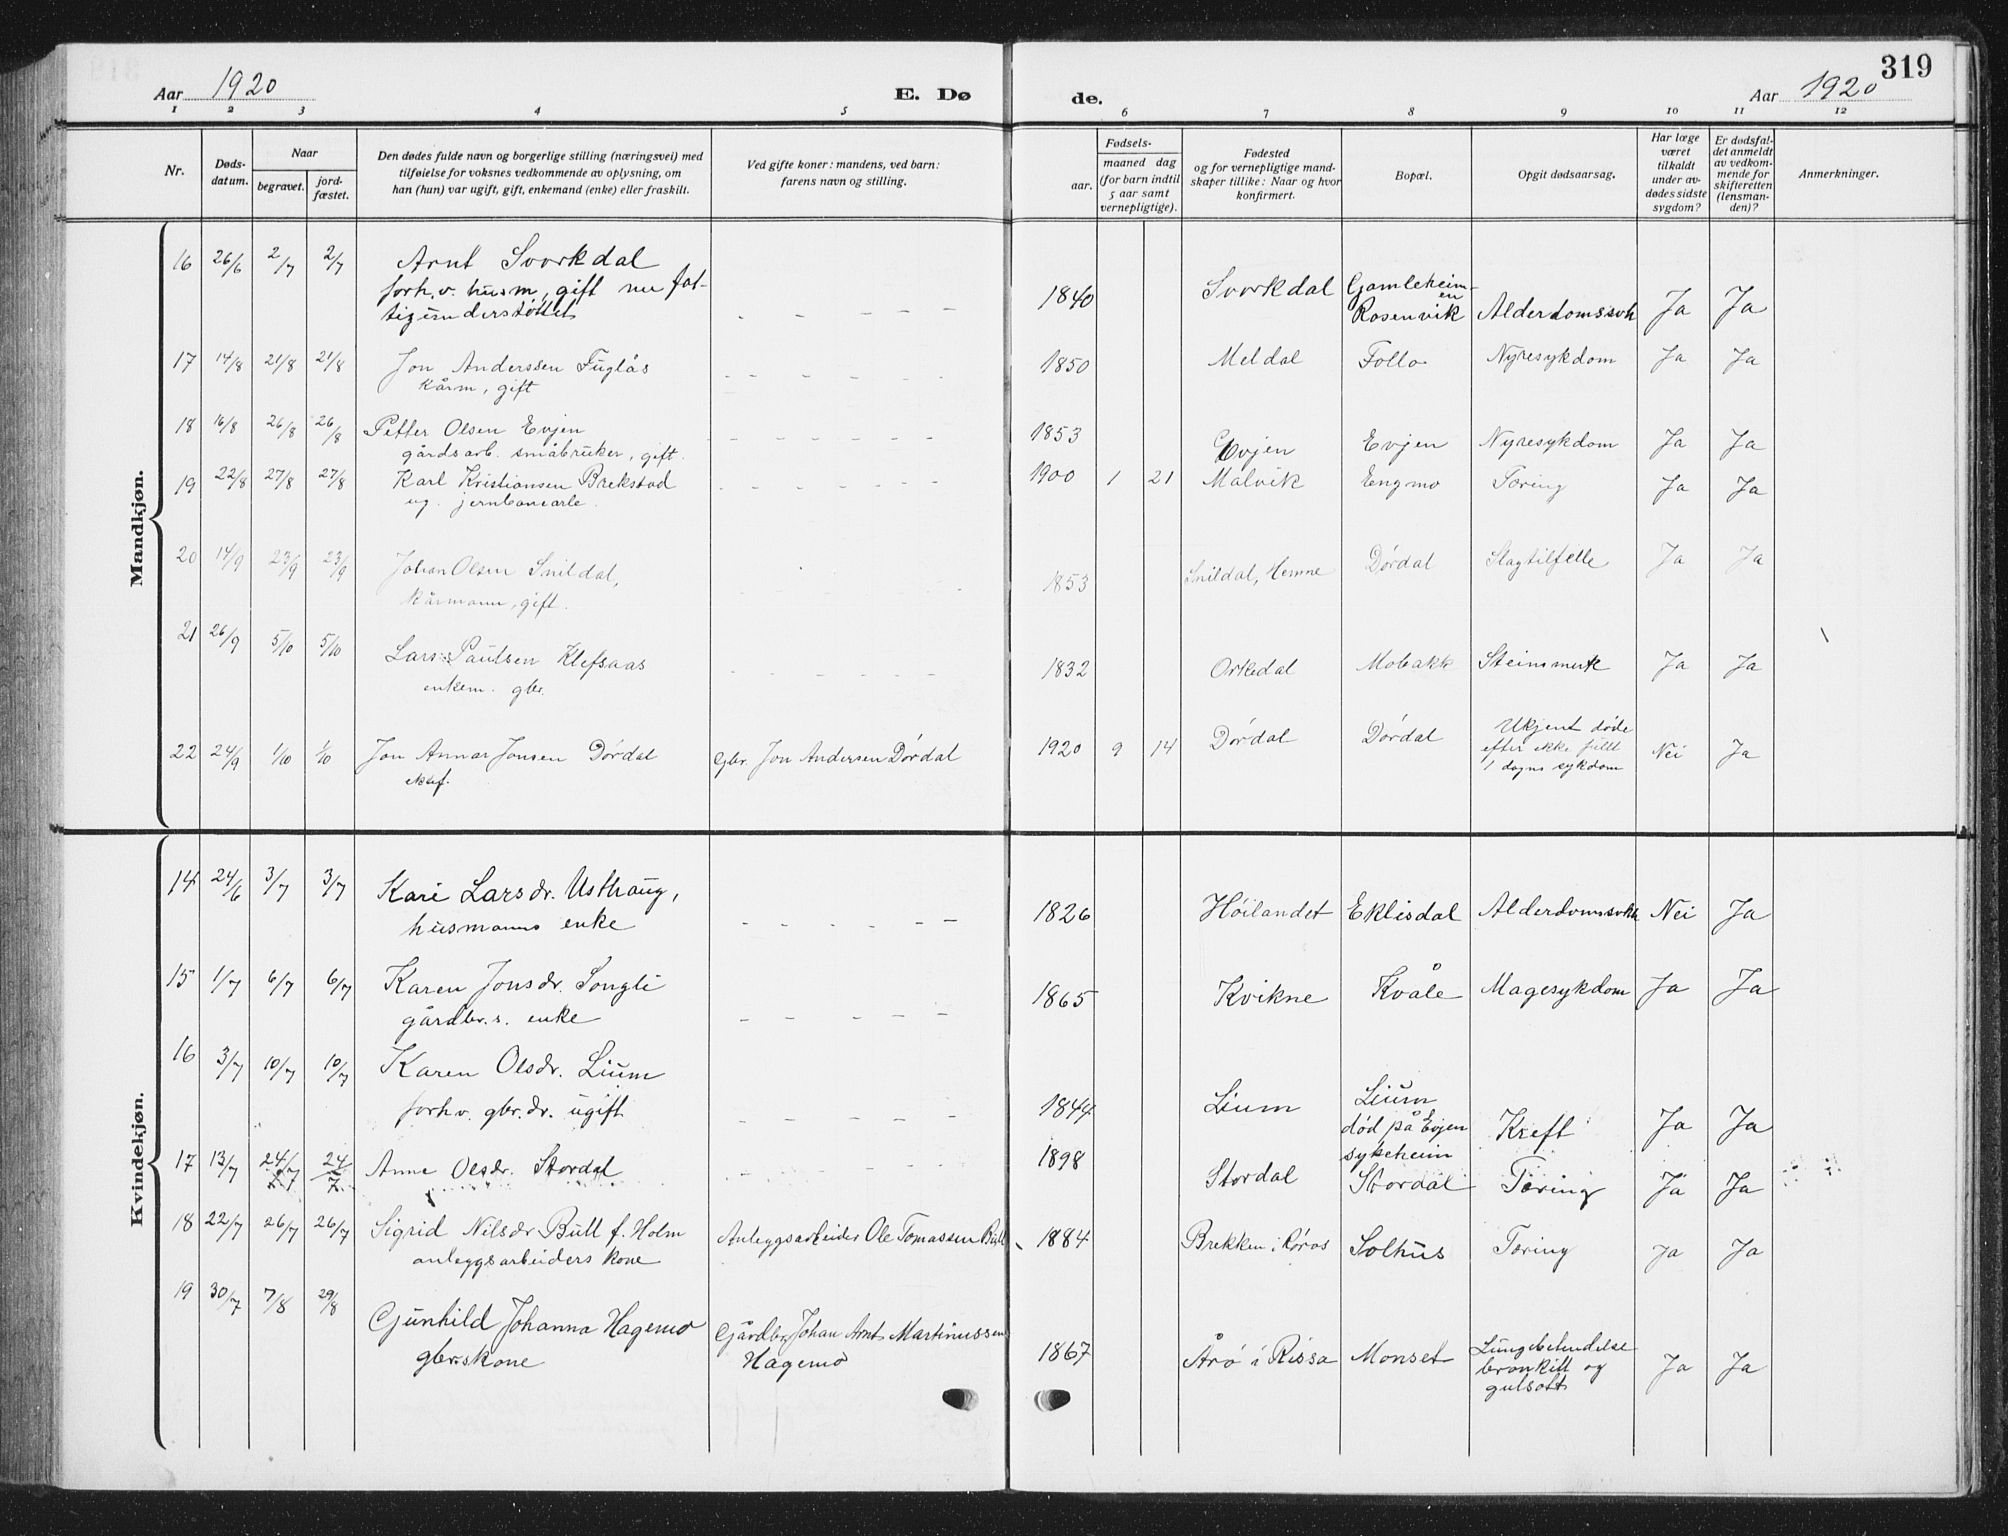 319
Aar 1920
E. Dø
de.
Aar 1920
1 2 3 4 5 6 7 8 9 10 11 12
Nr.
Døds-
datum.
Naar
begravet.
jord-
fæstet.
Den dødes fulde navn og borgerlige stilling (næringsvei) med
tilføielse for voksnes vedkommende av oplysning, om
han (hun) var ugift, gift, enkemand (enke) eller fraskilt.
Ved gifte koner: mandens, ved barn:
farens navn og stilling.
Fødsels-
aar.
maaned dag
(for barn indtil
5 aar samt
vernepligtige).
Fødested
og for vernepligtige mand-
skaper tillike: Naar og hvor
konfirmert.
Bopæl.
Opgit dødsaarsag.
Har læge
været
tilkaldt
under av-
dødes sidste
sygdom?
Er dødsfal-
det anmeldt
av vedkom-
mende for
skifteretten
(lensman-
den)?
Anmerkninger.
Mandkjøn.
16 26/6 2/7 2/7 Arnt Svorkdal
forh.v. husm, gift nu fat-
tigunderstøttet
1840 Svorkdal Gamleheim-
en
Rosenvik Alderdomssvk Ja Ja
17 14/8 21/8 21/8 Jon Anderssen Fuglås
kårm, gift
1850 Meldal Follo Nyresykdom Ja Ja
18 16/8 26/8 26/8 Petter Olsen Evjen
gårdsarb. småbruker, gift.
1853 Evjen Evjen Nyresykdom Ja Ja
19 22/8 27/8 27/8 Karl Kristiansen Brekstad
ug. jernbanearb.
1900 1 21 Malvik Engmo Tæring Ja Ja
20 14/9 23/9 23/9 Johan Olsen Snildal,
kårmann, gift.
1853 Snildal, Hemne Dórdal Slagtilfelle Ja Ja
21 26/9 5/10 5/10 Lars Paulsen Klefsaas
enkem. gbr.
1832 Orkedal Mobakk Steinsmerte Ja Ja
22 24/9 1/10 1/10 Jon Annar Jonsen Dórdal
ektef. gbr. Jon Andersen Dórdal
1920 9 14 Dórdal Dórdal Ukjent døde
efter ikke fullt
1 dagns sykdom Nei Ja
Kvindekjøn.
14 24/6 3/7 3/7 Kari Larsdr. Usthaug,
husmanns enke
1826 Høilandet Eklisdal Alderdomssvkh Nei Ja
15 1/7 6/7 6/7 Karen Jonsdr. Songli
gårdbr.s. enke
1865 Kvikne Kvåle Magesykdom Ja Ja
16 3/7 10/7 10/7 Karen Olsdr. Lium
forhv. gbr.dr. ugift
1844 Lium Lium
død på Evjen
sykeheim Kreft Ja Ja
17 13/7 24/7 24/7 Anne Olsdr. Stordal
1898 Stordal Stordal Tæring Ja Ja
18 22/7 26/7 26/7 Sigrid Nilsdr Bull f. Holm
anleggsarbeiders kone
Anleggsarbeider Ole Tomassen Bull
1884 Brekken i Røros Solhus Tæring Ja Ja
19 30/7 7/8 29/8 Gunhild Johanna Hagemo
gbrs kone
Gårdbr. Johan Arnt Martinussen
Hagemo
1867 Årø i Rissa Monset Lungebetendelse
bronkitt og
gulsott Ja Ja